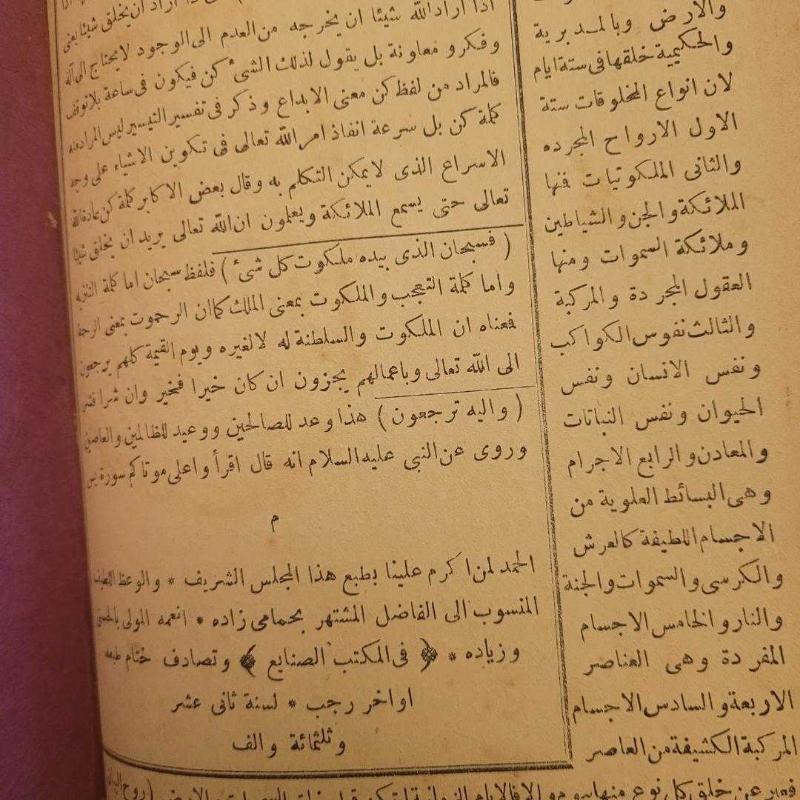 اذا اراد الله شيئا ان يخرجه من العدم الى الوجود لا يحتاج الى آلة
وفكر ومعاونة بل يقول لذلك الشئ كن فيكون فى ساعة بلا توقف
فالمراد من لفظ كن معنى الابداع وذكر فى تفسير التيسير ليس المراد منه
كلمة كن بل سرعة انفاذ امر الله تعالى فى تكوين الاشياء على وجه
الاسراع الذى لايمكن التكلم به وقال بعض الاكابر كلمة كن عادة الله
تعالى حتى يسمع الملائكة ويعلمون ان الله تعالى يريد ان يخلق شيئا
( فسبحان الذى بيده ملكوت كل شئ ) فلفظ سبحان اما كلمة التنزيه
واما كلمة التعجب والملكوت بمعنى الملك كما ان الرحموت بمعنى الرحمة
فمعناه ان الملكوت والسلطنة له لا لغيره ويوم القيمة كلهم يرجعون
الى الله تعالى وباعمالهم يجزون ان كان خيرا فخير وان شرا فشر
( واليه ترجعون ) هذا وعد للصالحين ووعيد للظالمين والعاصين
وروى عن النبى عليه السلام انه قال اقرأ واعلى موتاكم سورة يس
م
الحمد لمن اكرم علينا بطبع هذا المجلس الشريف * والوعظ اللطيف
المنسوب الى الفاضل المشتهر بحمامى زاده * انعمه المولى بالحسنى
وزياده * ﴿ فى المكتب الصنايع ﴾ وتصادف ختام طبعه
اواخر رجب * لسنة ثانى عشر
وثلثمائة والف
والارض وبالمدبرية
والحكيمية خلقها فى ستة ايام
لان انواع المخلوقات ستة
الاول الارواح المجرده
والثانى الملكوتيات فنها
الملائكة والجن والشياطين
وملائكة السموات ومنها
العقول المجردة والمركبة
والثالث نفوس الكواكب
ونفس الانسان ونفس
الحيوان ونفس النباتات
والمعادن والرابع الاجرام
وهى البسائط العلوية من
الاجسام اللطيفة كالعرش
والكرسى والسموات والجنة
والنار والخامس الاجسام
المفردة وهى العناصر
الاربعة والسادس الاجسام
المركبة الكشيفة من العاصر
فعبر عن خلق كل نوع منها بيوم والا فالايام الزمانية لم تكن قبل خلق السموات والارض (روح البيان